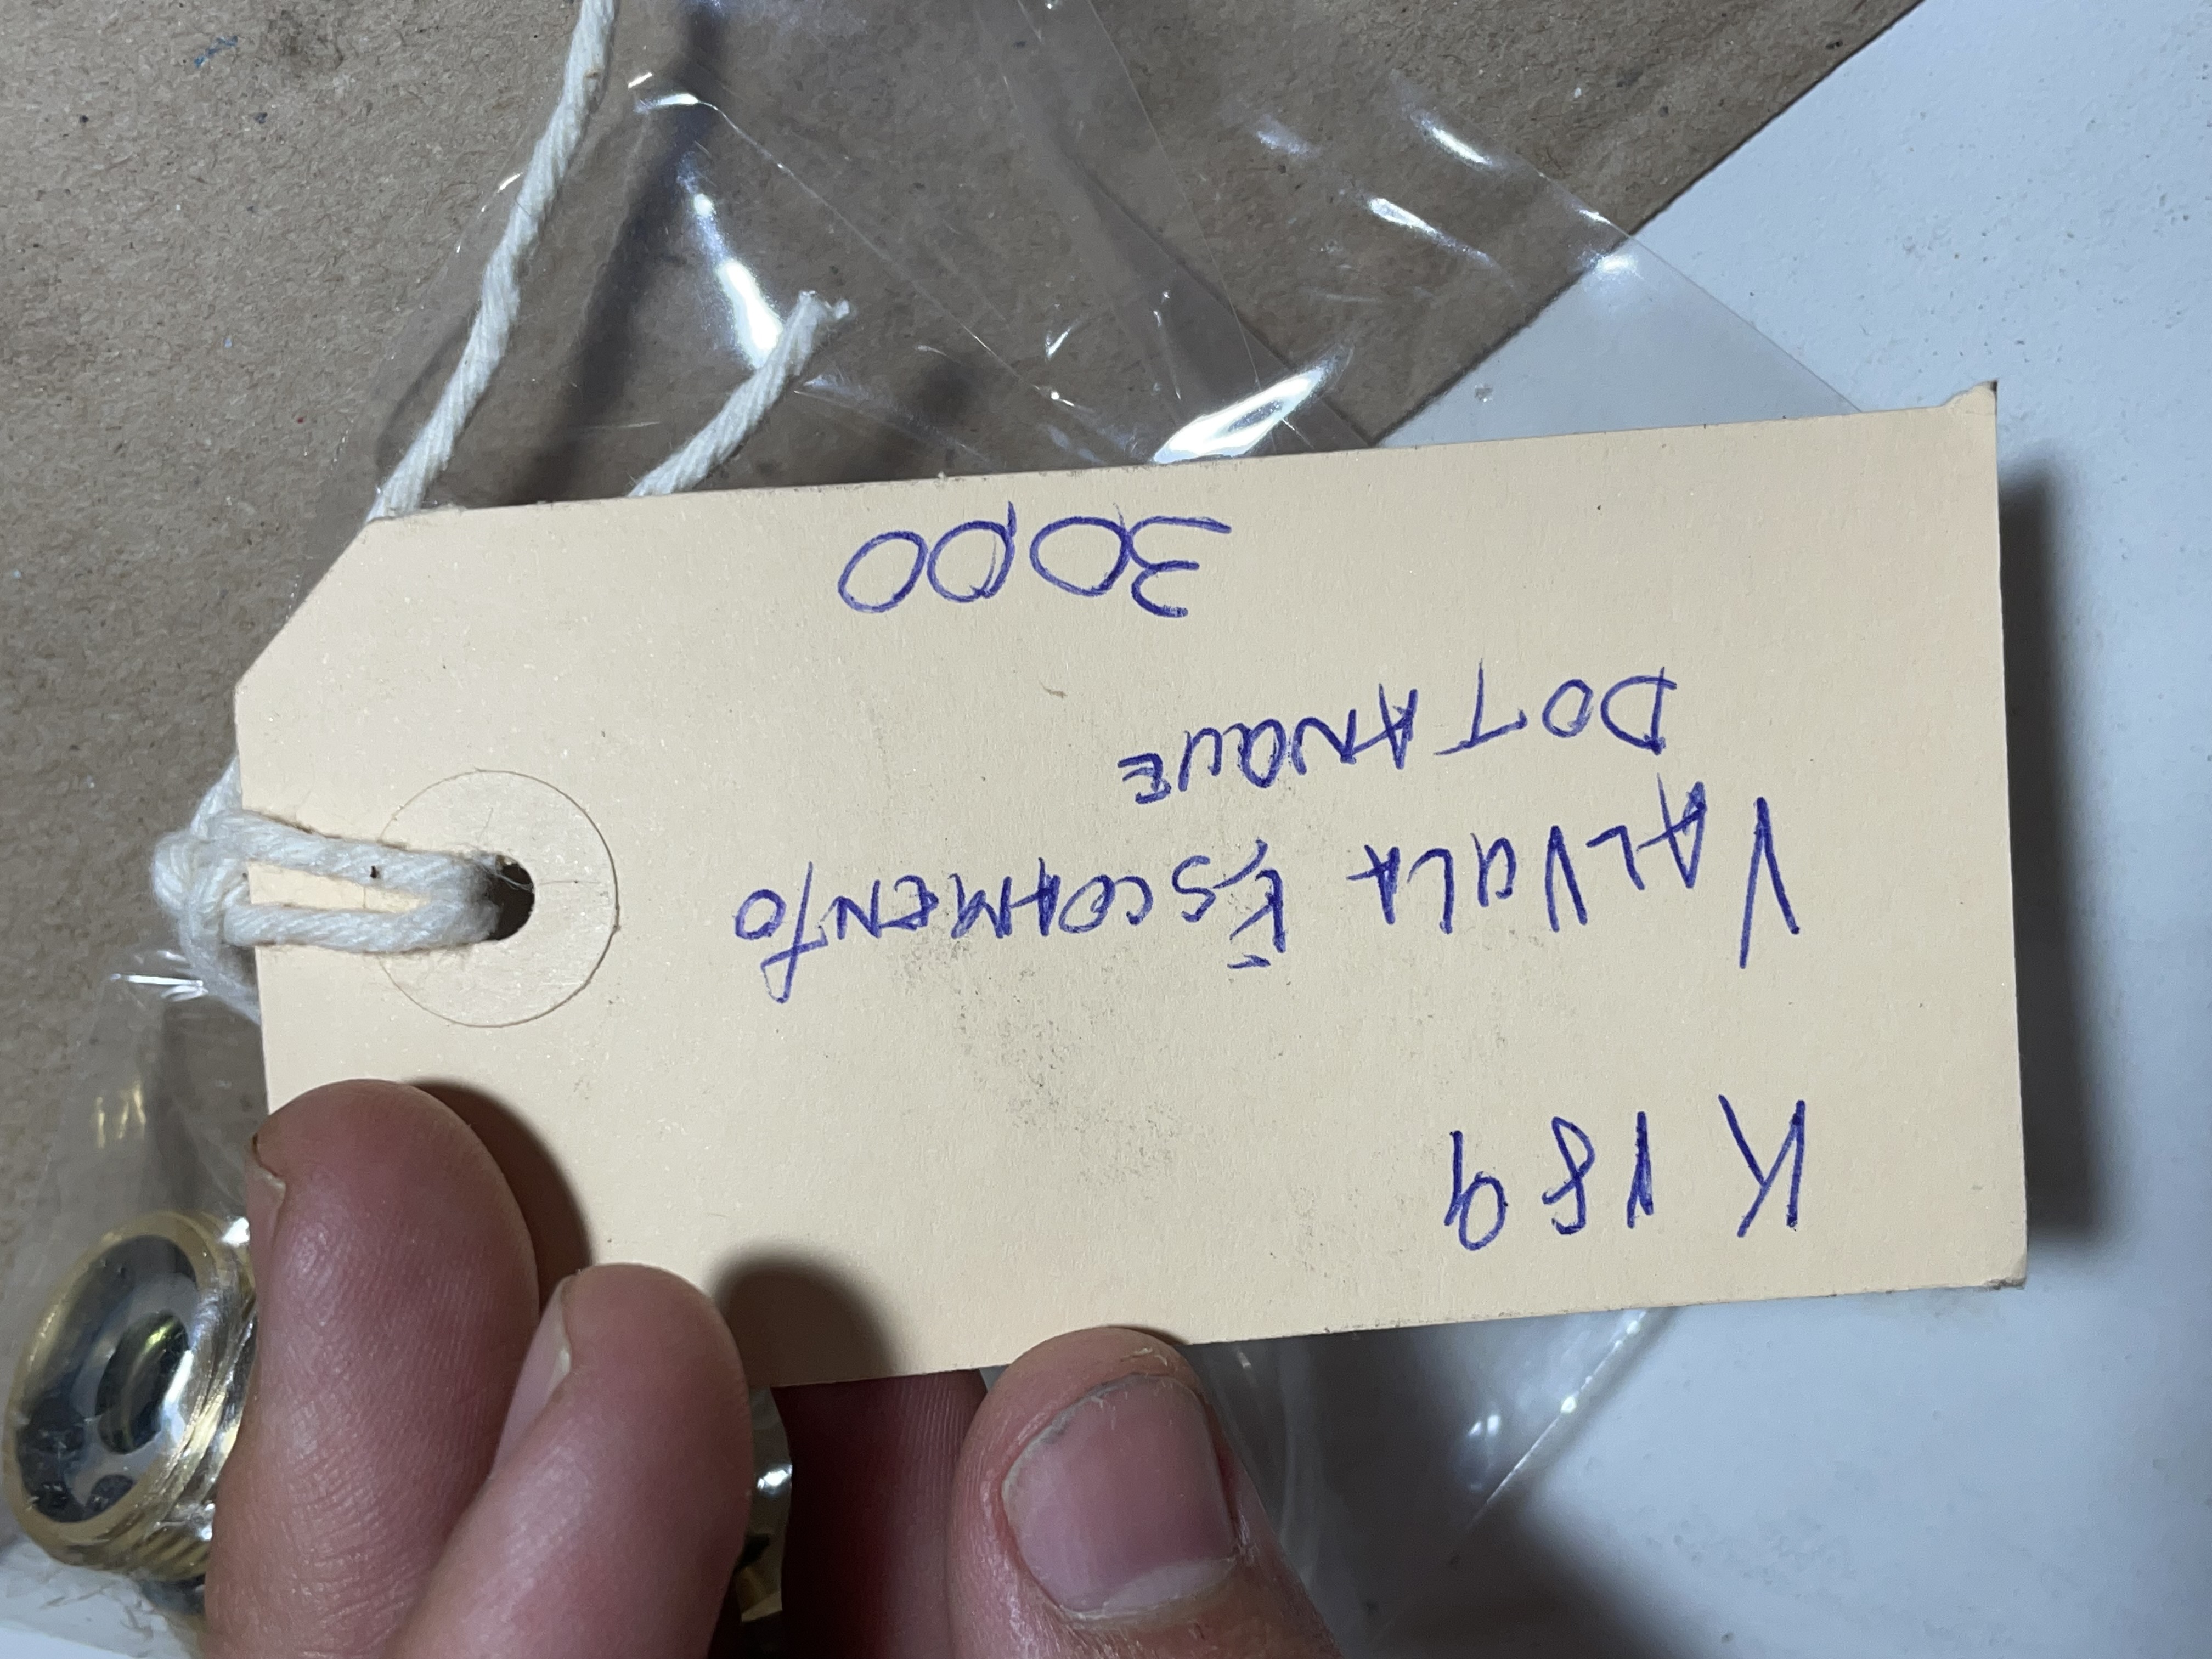 K 189
VALVULA ESCOAMENTO
DO TANQUE
3000